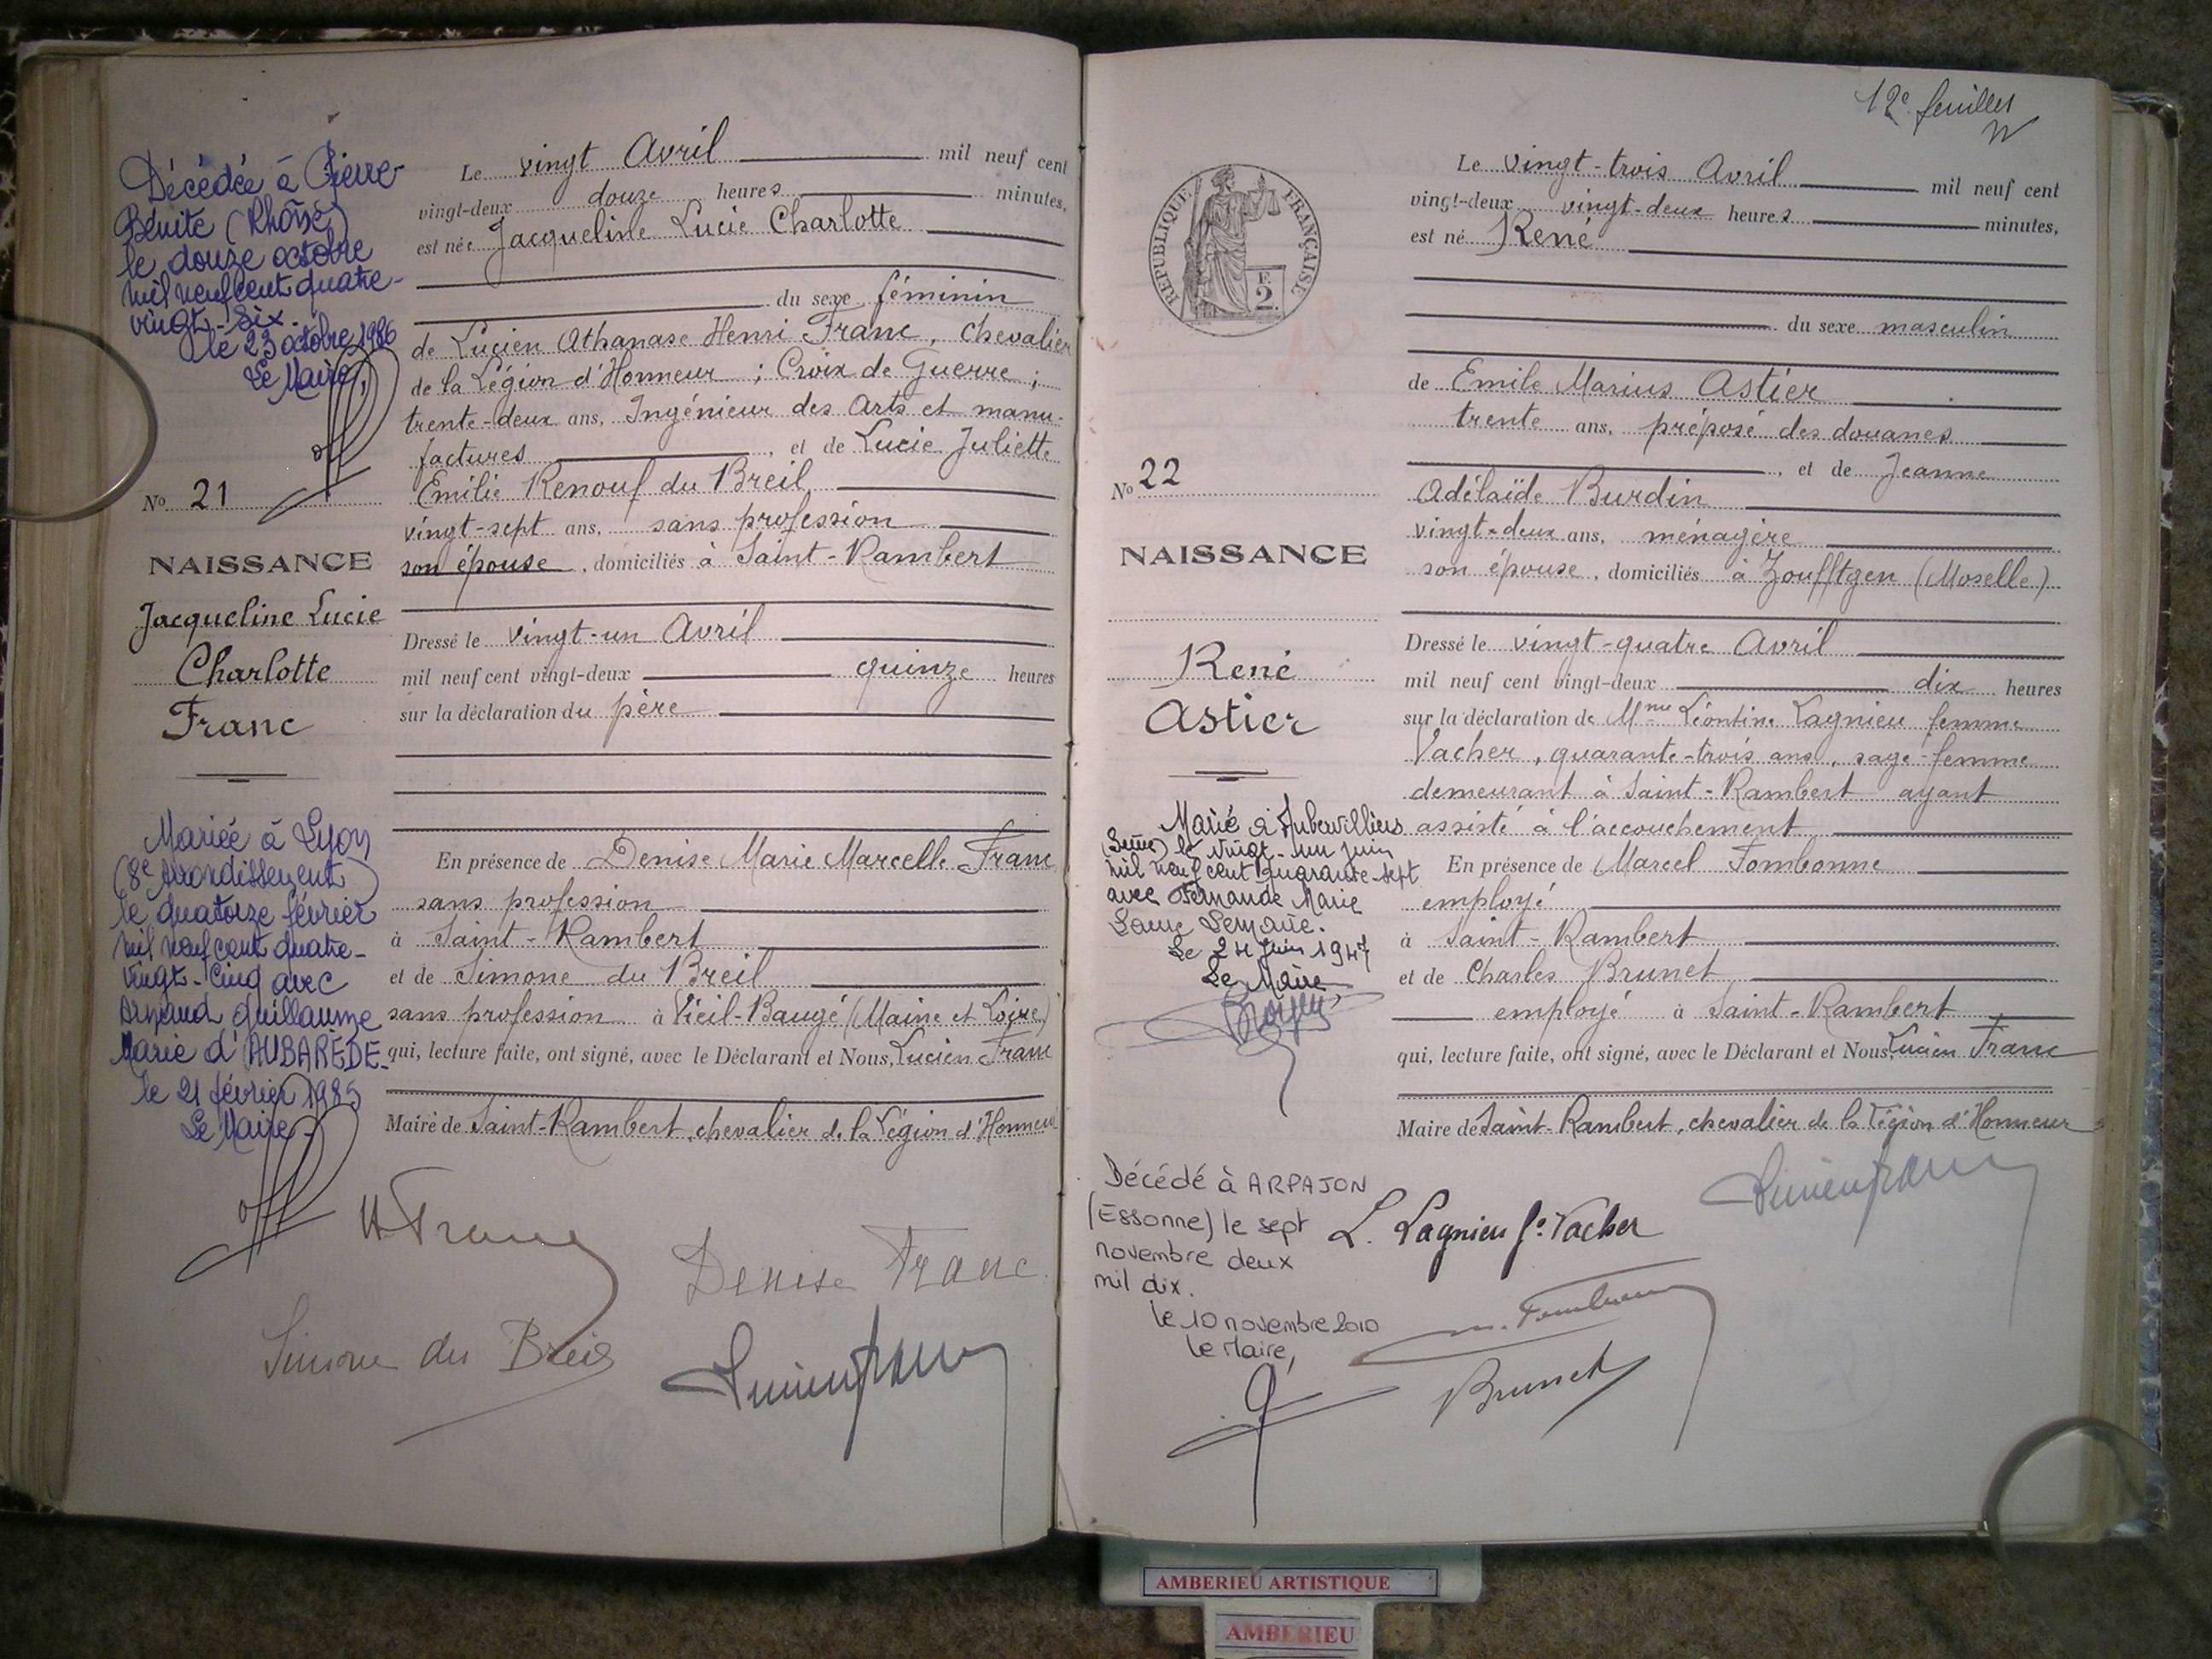 Décédée à Pierre-
Bénite (Rhône)
le douze octobre
mil neuf cent quatre-
vingt-six.
le 23 octobre 1986
Le Maire,
No 21
NAISSANCE
Jacqueline Lucie
Charlotte
Franc
Mariée à Lyon
(8e Arrondissement)
le quatorze février
mil neuf cent quatre-
vingt-cinq avec
Arnaud Guillaume
Marie d'AUBAREDE.
le 21 février 1985
Le Maire.
Le vingt Avril mil neuf cent
vingt-deux douze heures minutes,
est née Jacqueline Lucie Charlotte
du sexe féminin
de Lucien Athanase Henri Franc, chevalier
de la Légion d'Honneur ; Croix de Guerre ;
trente-deux ans, Ingénieur des Arts et manu-
factures, et de Lucie Juliette
Emilie Renouf du Breil
vingt-sept ans, sans profession
son épouse, domiciliés à Saint-Rambert
Dressé le vingt-un Avril
mil neuf cent vingt-deux quinze heures
sur la déclaration du père
En présence de Denise Marie Marcelle Franc
sans profession
à Saint-Rambert
et de Simone du Breil
sans profession à Vieil-Baugé (Maine et Loire)
qui, lecture faite, ont signé, avec le Déclarant et Nous, Lucien Franc
Maire de Saint-Rambert, chevalier de la Légion d'Honneur
H. Franc
Denise Franc
Simone du Breil
Lucien Franc
12e feuillet
REPUBLIQUE FRANÇAISE
F.
2.
No 22
NAISSANCE
René
Astier
Marié à Aubervilliers
(Seine) le vingt-un juin
mil neuf cent quarante-sept
avec Fernande Marie
Le 24 Juin 1947
Le Maire
Décédé à ARPAJON
(Essonne) le sept
novembre deux
mil dix.
le 10 novembre 2010
Le Maire,
Le vingt-trois Avril mil neuf cent
vingt-deux vingt-deux heures minutes,
est né René
du sexe masculin
de Emile Marius Astier
trente ans, préposé des douanes
, et de Jeanne
Adélaïde Burdin
vingt-deux ans, ménagère
son épouse, domiciliés à Zoufftgen (Moselle)
Dressé le vingt-quatre Avril
mil neuf cent vingt-deux dix heures
sur la déclaration de Mme Léontine Lagnieu femme
Vacher, quarante-trois ans, sage-femme
demeurant à Saint-Rambert ayant
assisté à l'accouchement
En présence de Marcel Fombonne
employé
à Saint-Rambert
et de Charles Brunet
employé à Saint-Rambert
qui, lecture faite, ont signé, avec le Déclarant et Nous, Lucien Franc
Maire de Saint-Rambert, chevalier de la Légion d'Honneur
Lucien Franc
L. Lagnieu fe Vacher
Brunet
AMBERIEU ARTISTIQUE
AMBERIEU